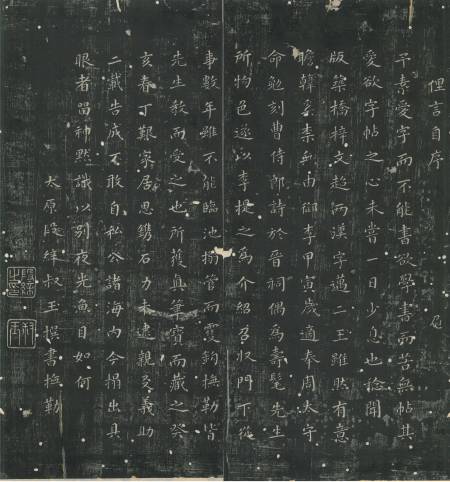 俚言自序
予素愛字而不能書欲學書而苦無帖其
愛欲字帖之心未嘗一日少息也聞
版築橋梓文超兩漢字邁二王雖然有意
瞻韓柰無由御李甲寅歲適奉周太守
命勉刻曹侍郎詩於晉祠偶為壽髦先生
所物色遂以李提之為介紹召收門下從
事數年雖不能臨池搦管而雙鉤撫勒皆
先生教而受之也所獲真筆寶而藏之癸
亥春丁艱家居思鐫石力未逮親友義助
二載告成不敢自私公諸海內今搨出具
眼者留神默識以別夜光魚目如何
太原段縡叔玉撰書撫勒